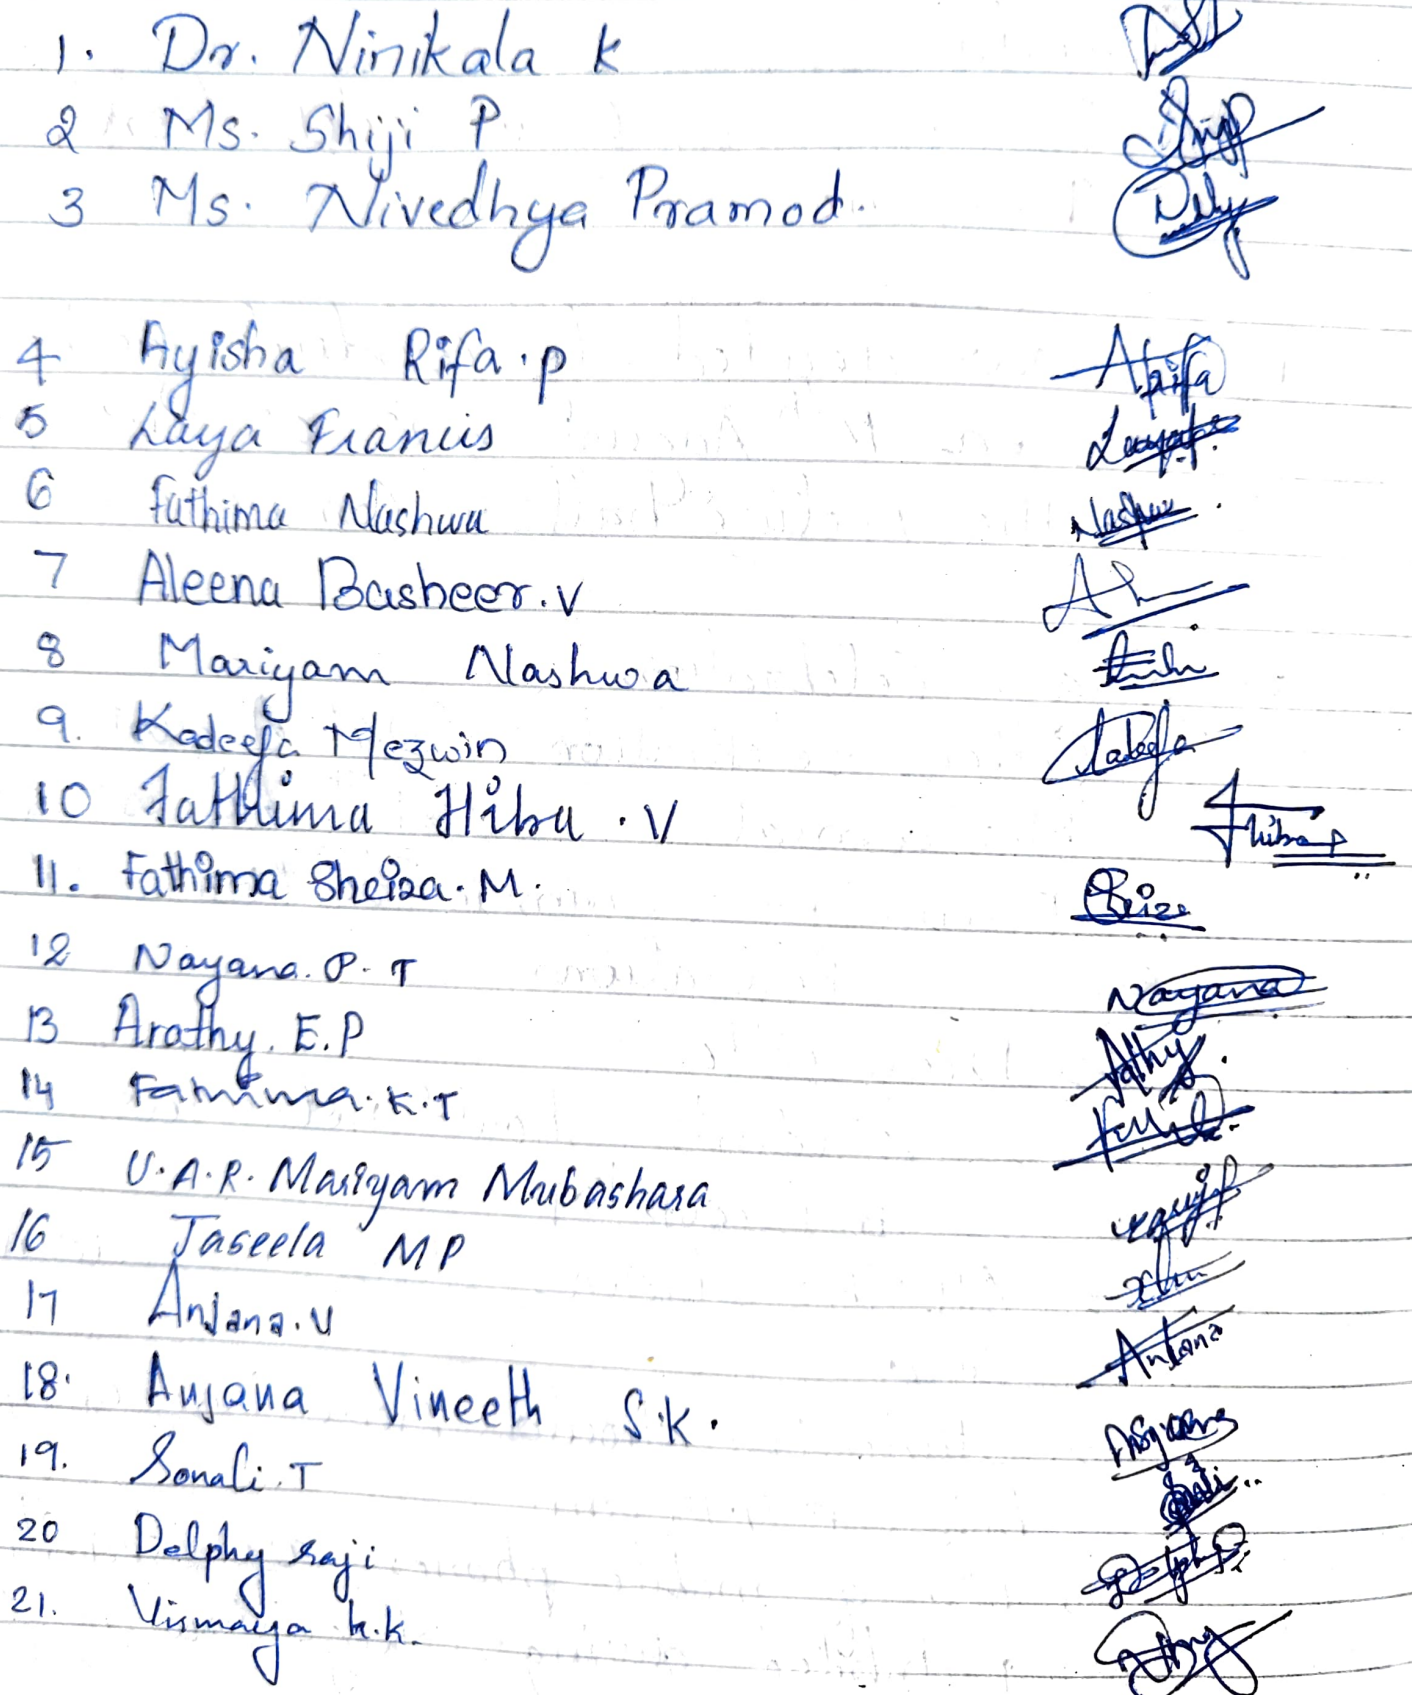 1. Dr. Ninikala K
2 Ms. Shiji P
3 Ms. Nivedhya Pramod.
4 Ayisha Rifa.P
5 Laya Francis
6 Fathima Nashwa Nashwa
7 Aleena Basheer.V
8 Mariyam Nashwa
9. Kadeeja Mezwin
10 Fathima Hiba .V
11. Fathima Sheiza.M.
12 Nayana.P.T Nayana
13 Arathy.E.P
14 Fathima.K.T
15 U.A.R. Mariyam Mubashara
16 Jaseela MP
17 Anjana.U Anjana
18. Anjana Vineeth S.K.
19. Sonali.T
20 Delphy Saji
21. Vismaya K.K.